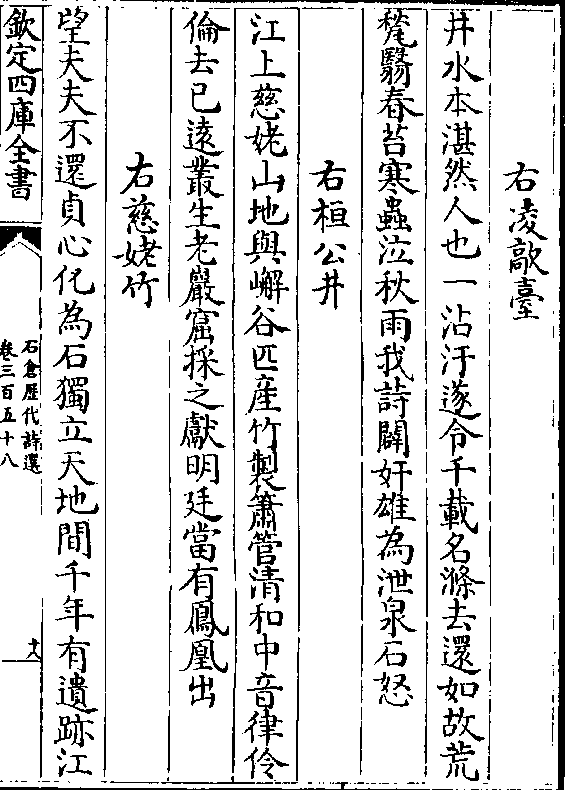 右凌歊臺
井水本湛然人也一沾汙遂令千載名滌去還如故荒
甃翳春苔寒蟲泣秋雨我詩闢奸雄為泄泉石怒
右桓公井
江上慈姥山地與嶰谷匹産竹製簫管清和中音律伶
倫去已遠叢生老巖窟採之獻明廷當有鳳凰出
右慈姥竹
望夫夫不還貞心化為石獨立天地間千年有遺跡江
欽定四庫全書
石倉歴代詩選
卷三百五十八